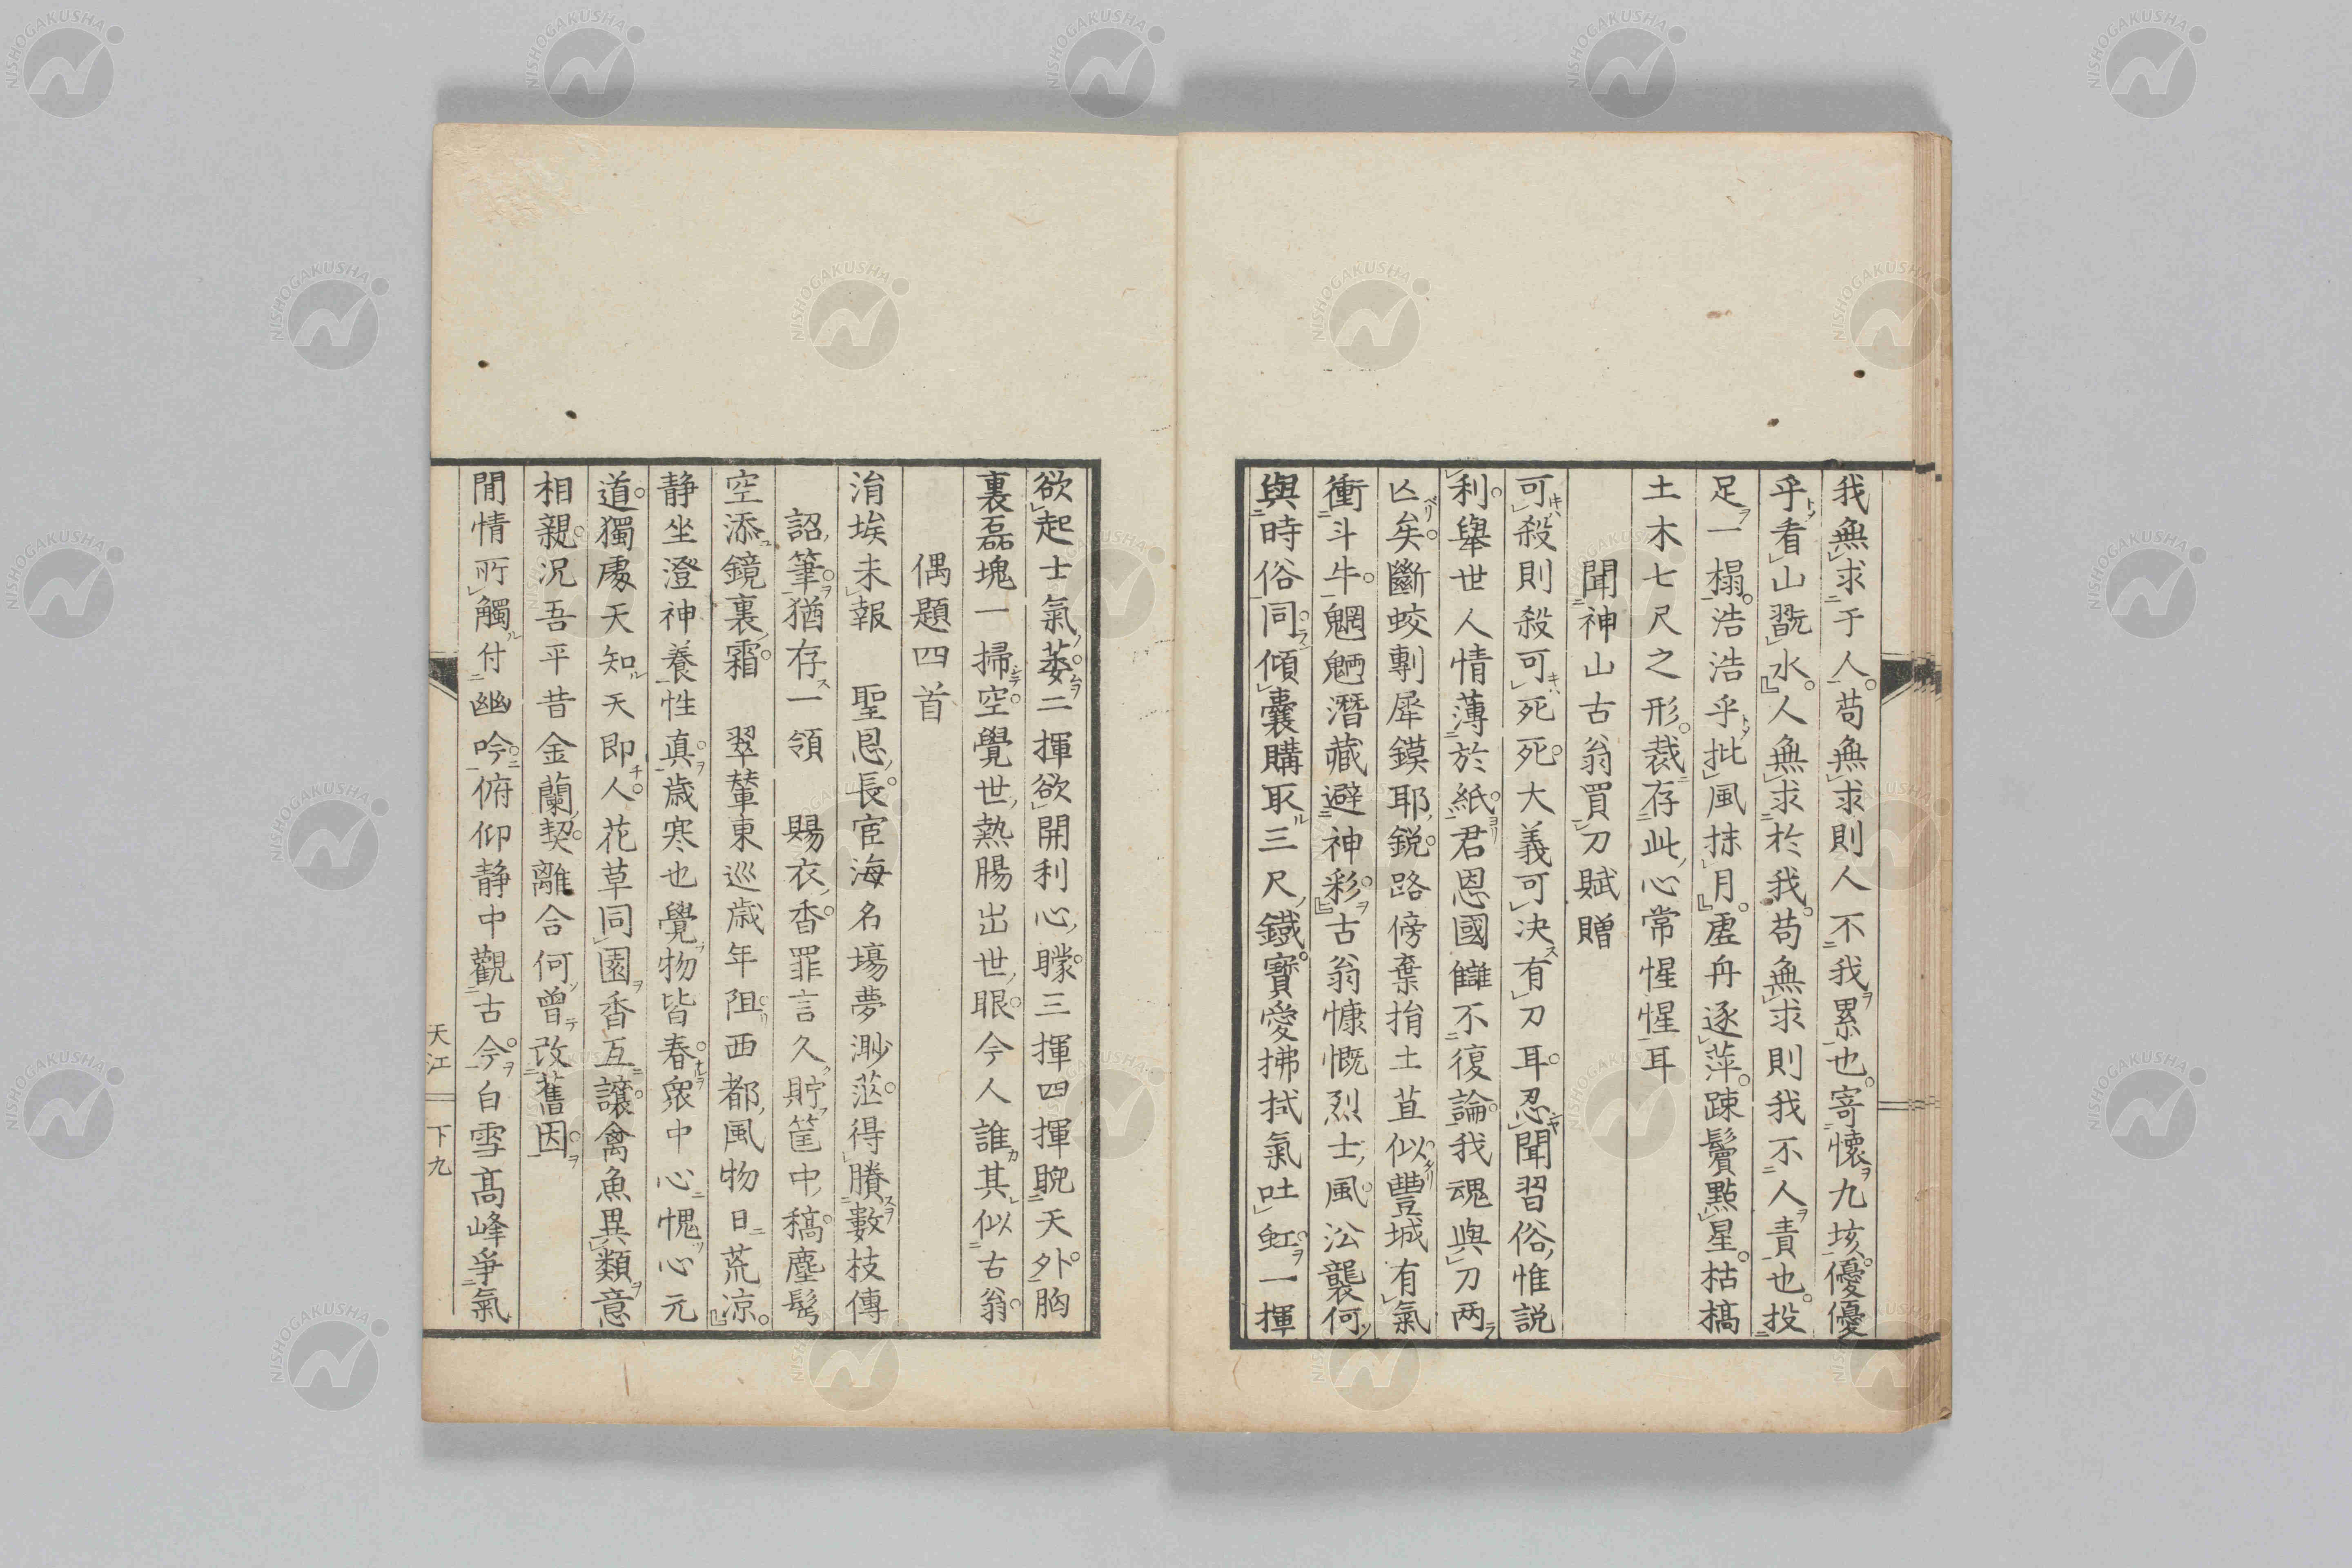 我無求于人苟無求則人不我累也寄懷九垓優優
乎看山翫水人無求於我苟無求則我不人責也投
足一榻浩浩乎批風抹月虛舟逐萍踈鬢點星枯槁
土木七尺之形裁存此心常惺惺耳
聞神山古翁買刀賦贈
可殺則殺可死死大義可決有刀耳忍聞習俗惟説
利舉世人情薄於紙君恩國讎不復論我魂與刀兩
亾矣斷蛟剸犀鏌耶鋭路傍棄捐土苴似豐城有氣
衝斗牛魍魎潛藏避神彩古翁慷慨烈士風沿襲何
與時俗同傾囊購取三尺鐵寶愛拂拭氣吐虹一揮
欲起士氣萎二揮欲開利心矇三揮四揮睨天外胸
裏磊塊一掃空覺世熱腸出世眼今人誰其似古翁
偶題四首
涓埃未報　聖恩長宦海名塲夢渺茫得賸數枝傳
詔筆猶存一領　賜衣香罪言久貯筐中稿塵髩
空添鏡裏霜　翠輦東巡歳年阻西都風物日荒凉
静坐澄神養性真歳寒也覺物皆春衆中心愧心元
道獨處天知天即人花草同園香互讓禽魚異類意
相親况吾平昔金蘭契離合何曾改舊因
閒情所觸付幽吟俯仰静中觀古今白雪髙峰爭氣
天江　下九
NISHOGAKUSHA